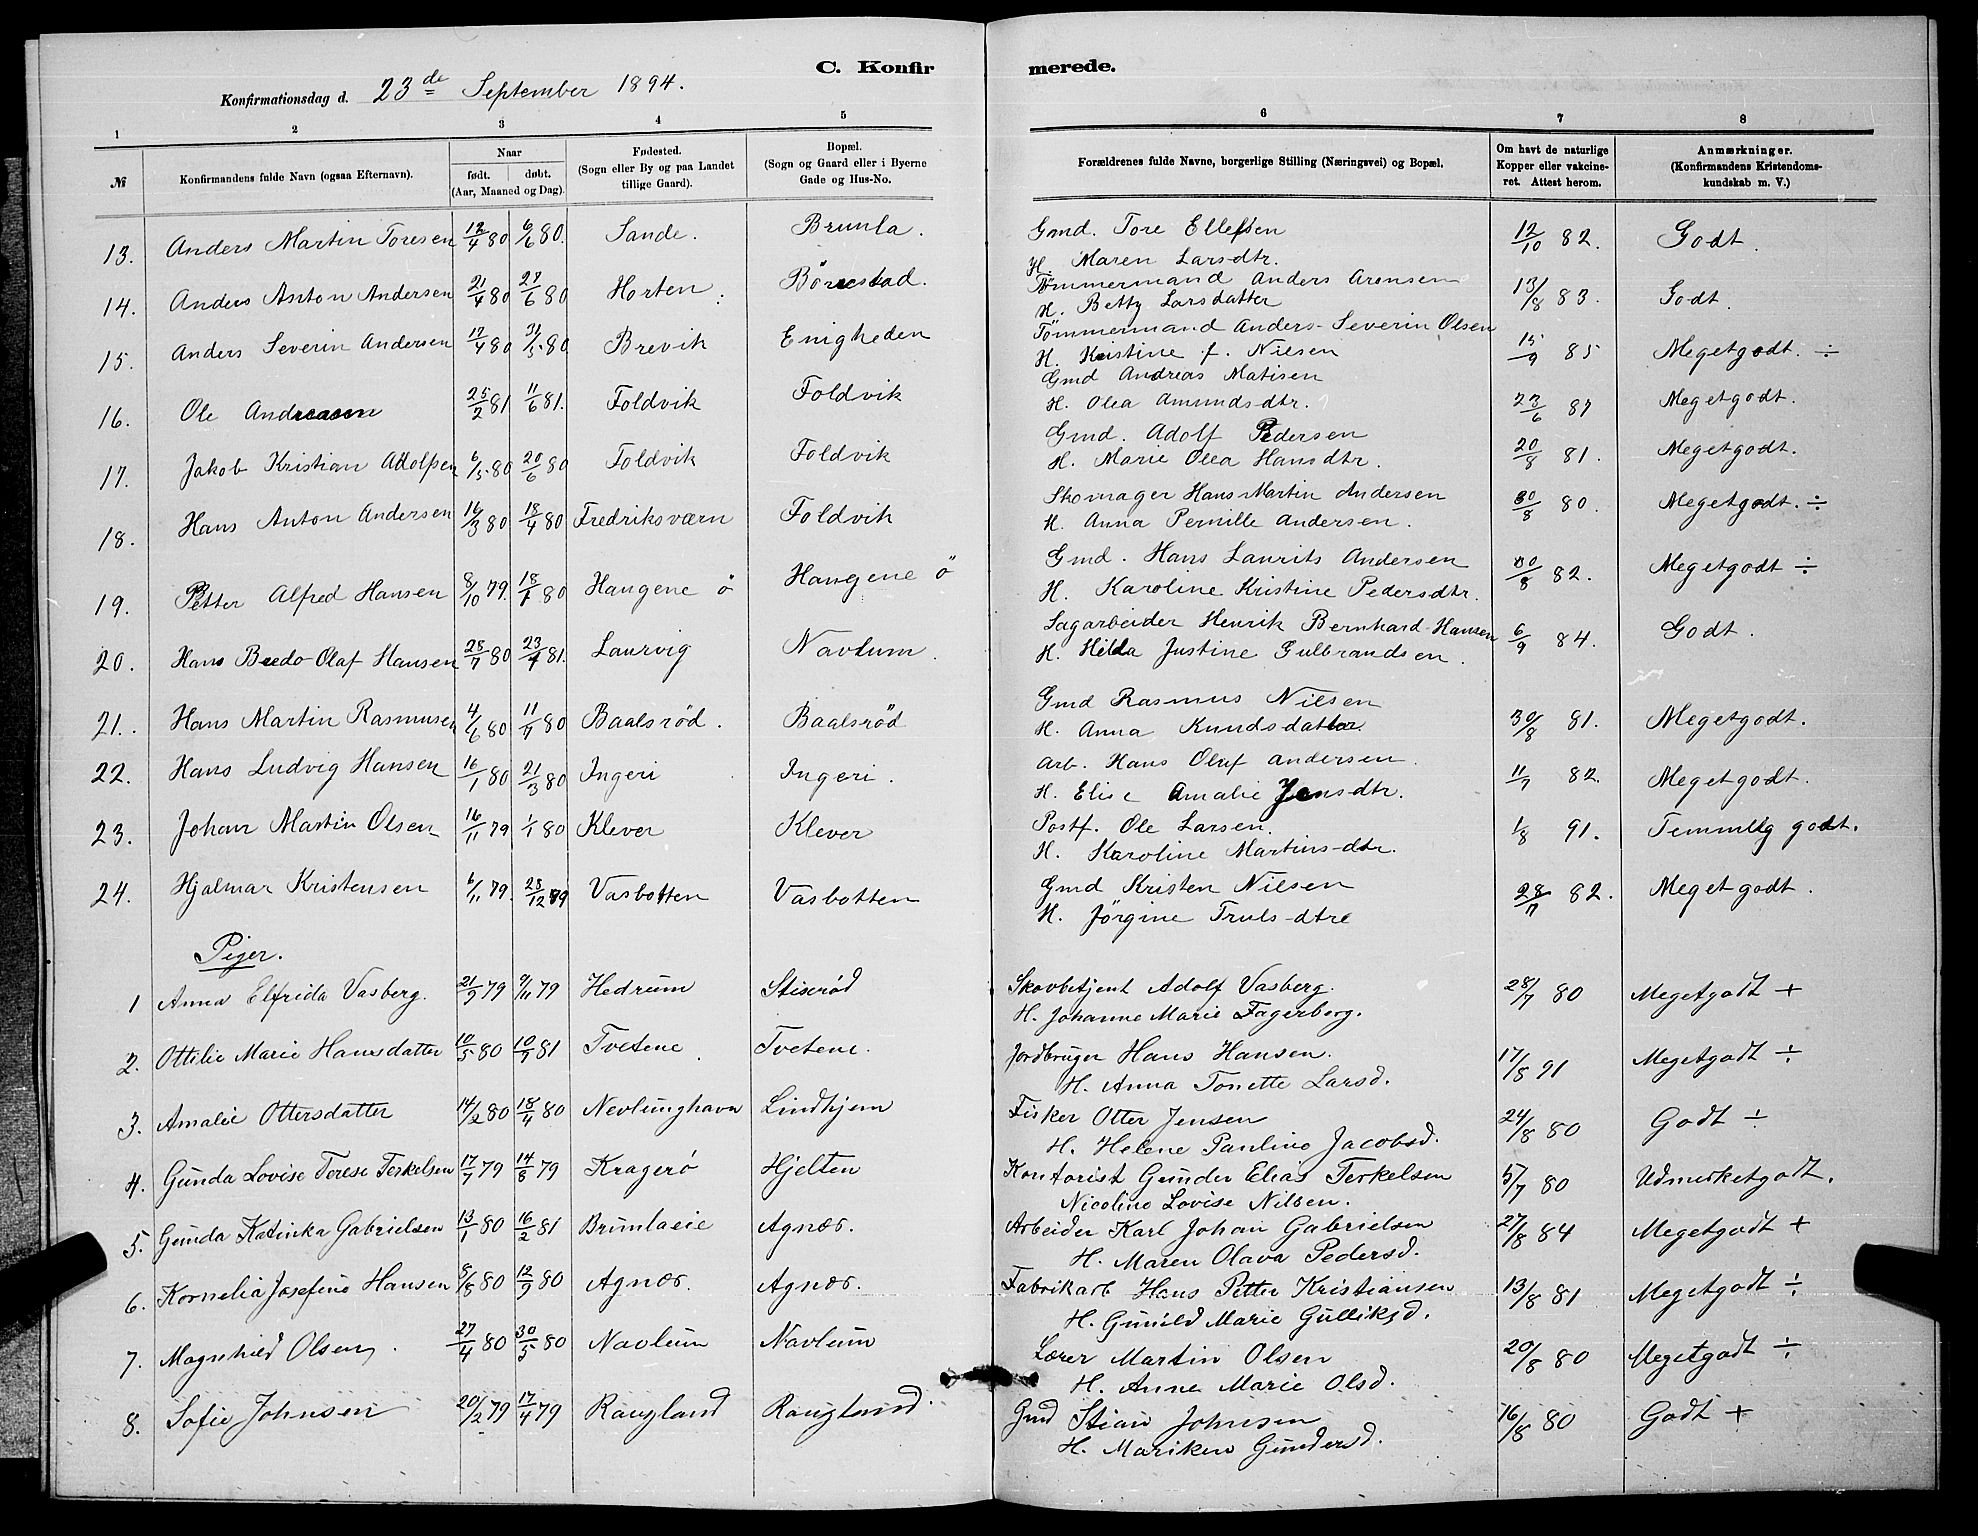 C. Konfirmerede.
Konfirmationsdag d. 23de September 1894.
1 2 3 4 5 6 7 8
№ Konfirmandens fulde Navn (ogsaa Efternavn). Naar født. døbt. (Aar, Maaned og Dag). Fødested. (Sogn eller By og paa Landet tillige Gaard). Bopæl. (Sogn og Gaard eller i Byerne Gade og Hus-No. Forældrenes fulde Navne, borgerlige Stilling (Næringsvei) og Bopæl. Om havt de naturlige Kopper eller vakcineret. Attest herom. Anmærkninger. (Konfirmandens Kristendomskundskab m. V.)
13. Anders Martin Toresen 12/4 80 6/6 80. Sande. Brunla. Gmd. Tore Ellefsen 12/10 82. Godt.
H. Maren Larsdtr.
14. Anders Anton Andersen 21/4 80 27/6 80 Horten. Börrestad. Tömmermand Anders Aronsen 13/8 83. Godt.
H. Betty Larsdatter
15. Anders Severin Andersen 12/4 80 31/5 80 Brevik Enigheden Tömmermand Anders Severin Olsen 15/9 85 Megetgodt. ÷
H. Kristine f. Nilsen
16. Ole Andreasen 25/2 81 11/6 81. Foldvik Foldvik Gmd Andreas Matisen 23/6 87 Megetgodt.
H. Olea Amundsdtr.
17. Jakob Kristian Adolfsen 6/5 80 20/6 80 Foldvik Foldvik Gmd. Adolf Pedersen 20/8 81. Megetgodt.
H. Marie Olea Hansdtr.
18. Hans Anton Andersen 16/3 80 18/4 80 Fredriksværn Foldvik Skomager Hans Martin Andersen 30/8 80. Megetgodt. ÷
H. Anna Pernille Andersen.
19. Petter Alfred Hansen 8/10 79. 18/1 80 Hangene ö Hangene ö Gmd. Hans Laurits Andersen 30/8 82. Megetgodt ÷
H. Karoline Kristine Pedersdtr.
20. Hans Bredo Olaf Hansen 28/7 80 23/1 81. Laurvig Navlum. Sagarbeider Henrik Bernhard Hansen 6/9 84. Godt.
H. Hilda Justine Gulbrandsen.
21. Hans Martin Rasmusen 4/6 80 11/7 80 Baalsrød. Baalsrød Gmd Rasmus Nilsen 30/8 81. Megetgodt.
H. Anna Knudsdatter
22. Hans Ludvig Hansen 16/1 80 21/3 80 Ingeri Ingeri. Arb. Hans Oluf Andersen. 11/7 82. Megetgodt.
H. Elise Amalie Jensdtr.
23. Johan Martin Olsen 16/11 79 1/1 80 Klever Klever Postf. Ole Larsen. 1/8 91. Temmelig godt.
H. Karoline Martinsdtr.
24. Hjalmar Kristensen 6/11 79. 28/12 79 Vasbotten Vasbotten Gmd Kristen Nilsen 28/7 82. Megetgodt.
H. Jörgine Trulsdtre
Piger.
1 Anna Elfrida Vasberg. 21/9 79 9/11 79 Hedrum Stiserød Skovbetjent Adolf Vasberg. 28/7 80 Megetgodt +
H. Johanne Marie Fagerberg.
2. Ottilie Marie Hansdatter 10/5 80 10/7 81 Tvetene Tvetene. Jordbruger Hans Hansen. 17/8 91 Megetgodt ÷
H. Anna Tonette Larsd.
3. Amalie Ottersdatter 14/2 80 18/4 80 Nevlunghavn Lindhjem Fisker Otter Jensen 24/8 80 Godt ÷
H. Helene Pauline Jacobsd.
4. Gunda Lovise Terese Terkelsen 17/7 79 14/8 79 Kragerø Hjelten Kontorist Gunder Elias Terkelsen 5/7 80 Udmerketgodt.
Nicoline Lovise Nilsen.
5. Gunda Katinka Gabrielsen 13/1 80 16/2 81 Brunlaeie Agnæs. Arbeider Karl Johan Gabrielsen 27/8 84 Megetgodt +
H. Maren Olava Pedersd.
6. Kornelia Josefine Hansen 8/8 80 12/9 80 Agnæs. Agnæs. Fabrikarb Hans Petter Kristiansen 13/8 81 Megetgodt ÷
H. Gunild Marie Gulliksd.
7. Magnhild Olsen. 27/4 80 30/5 80 Navlum Navlum Lærer Martin Olsen 20/8 80 Megetgodt ÷
H. Anne Marie Olsd.
8. Sofie Johnsen 20/2 79 17/4 79 Raugland Raugland. Gmd Stian Johnsen 16/8 80 Godt +
H. Mariken Gundersd.